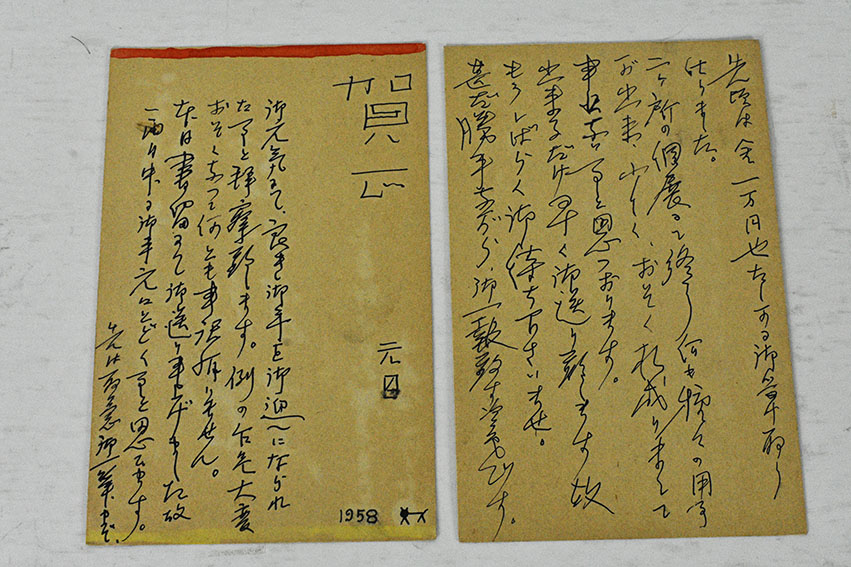 賀正
元日
御元気にて、良き御年を御迎へになられ
た事と拝察致します。例の台先大変
おそくなつて何とも申訳有りません。
本日書留にて御送り申上げました故
一両日中には御手元にとどく事と思ひます。
先は取急ぎ御一筆まで、
1958
先頃は金一万円也たしかに御受取り
仕りました。
二ヶ所の個展を終り何や様々の用事
が出来、少々、おそく相成りまして
申訳ない事と思つております。
出来るだけ早く御送り致します故
もうしばらく御待ち下さいませ。
甚だ勝手ながら、御一報致す次第です。